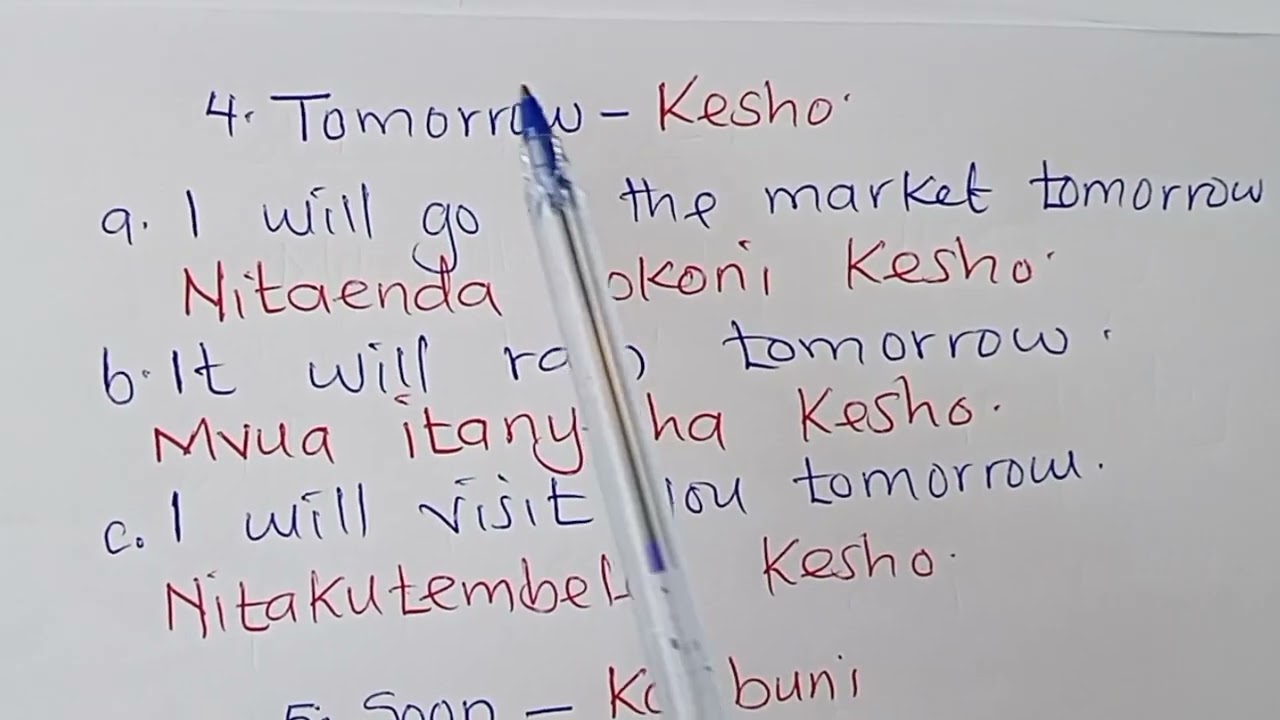 4. Tomorrow - Kesho.
a. I will go the market tomorrow
Nitaenda okoni Kesho.
b. It will tomorrow.
Mvua itany ha Kesho.
c. I will visit you tomorrow.
Nitakutembel Kesho.
5. Soon - buni